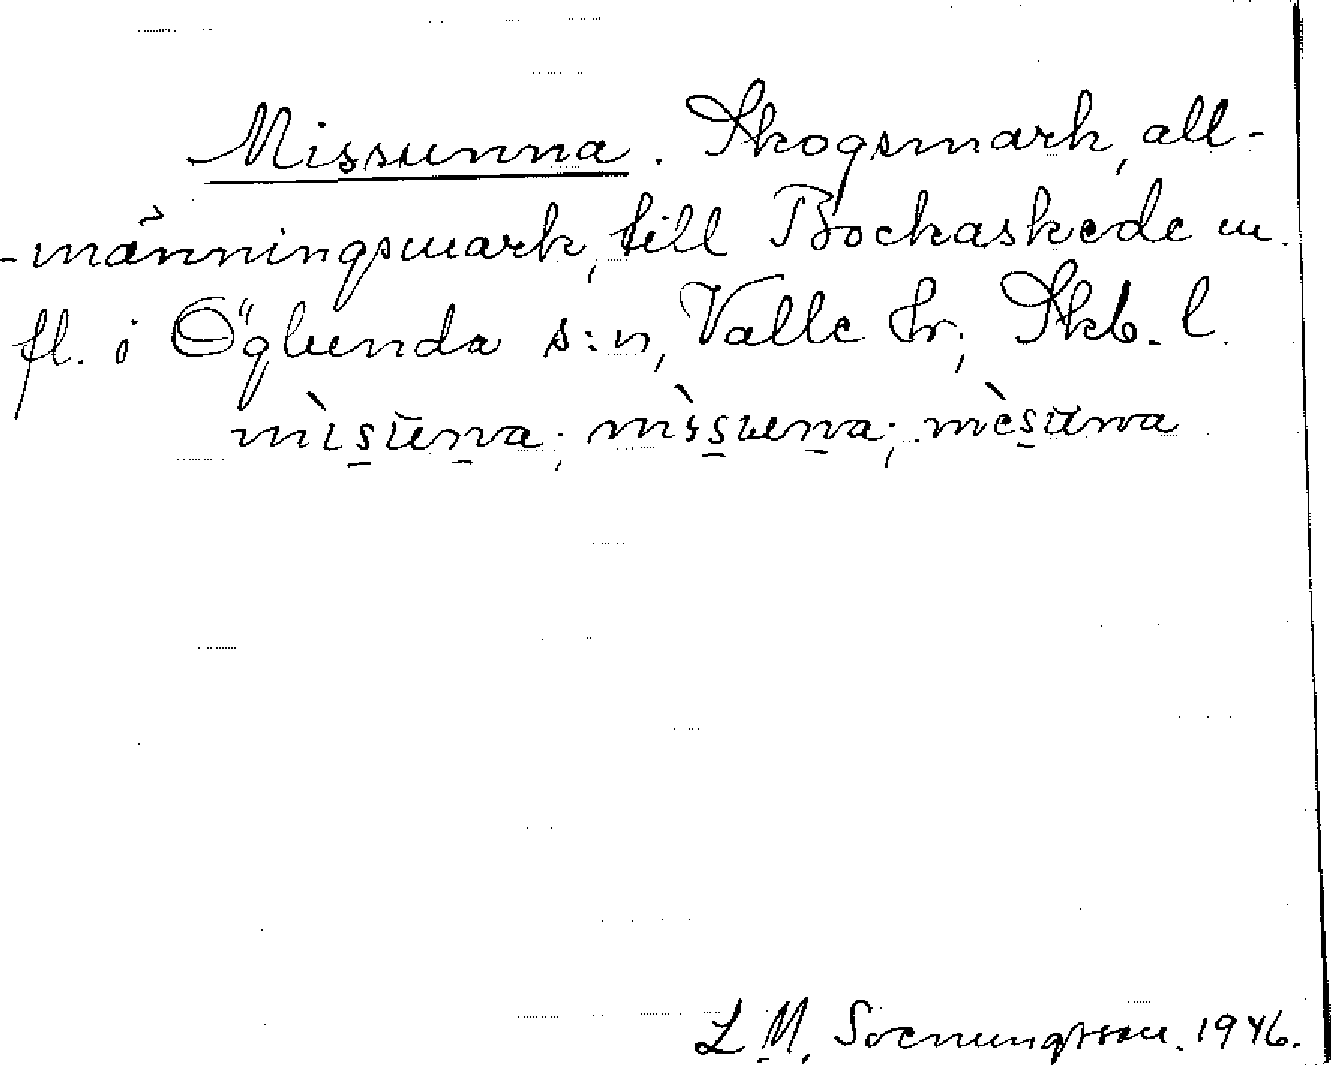 Missunna. Skogsmark, all-
-männingsmark, till Bockaskede m.
fl. i Öglunda s:n, Valle hr; Skb. l.
mìsu̅na; mìsuna; mèsu̅na
L. M. Svenungsson. 1946.